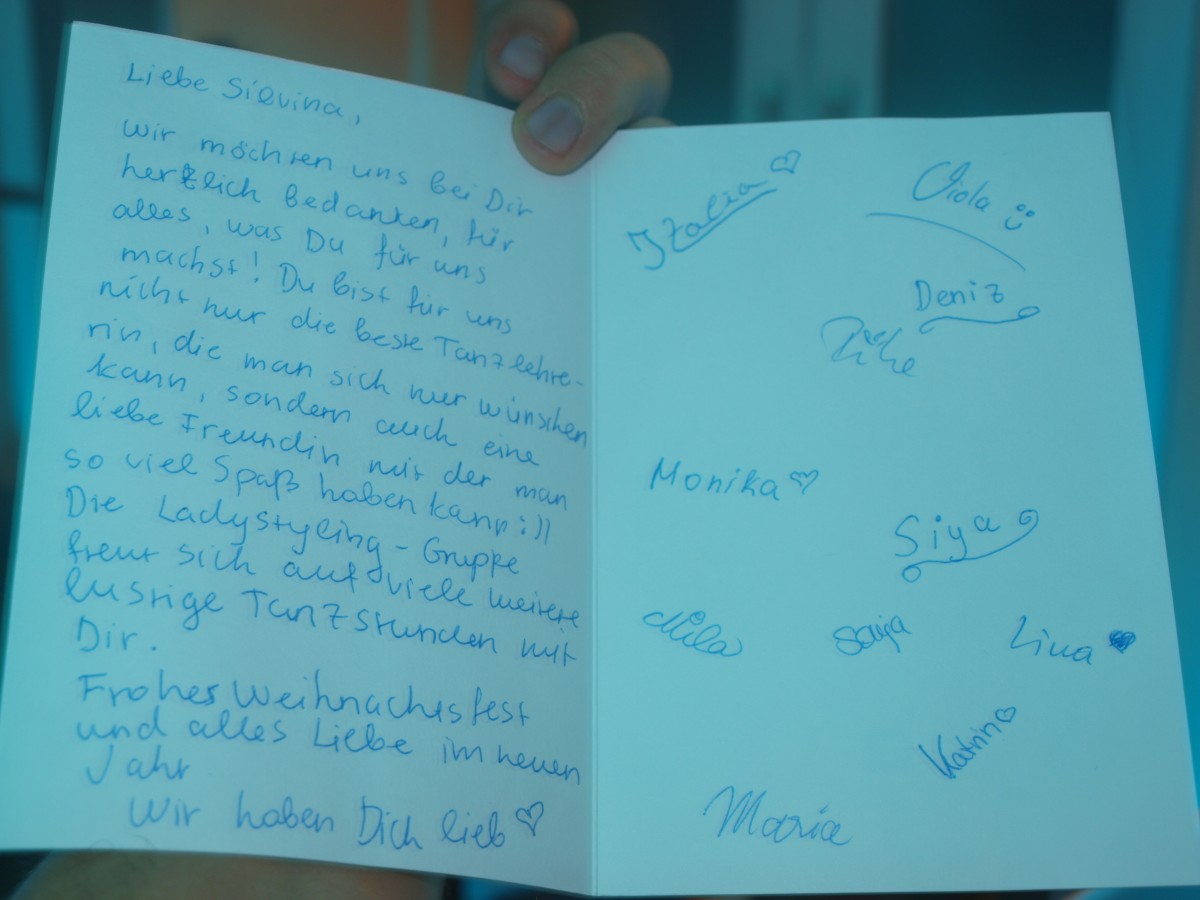 Liebe Silvina,
wir möchten uns bei Dir
herzlich bedanken, für
alles, was Du für uns
machst! Du bist für uns
nicht nur die beste Tanzlehre-
rin, die man sich nur wünschen
kann, sondern auch eine
liebe Freundin mit der man
so viel Spaß haben kann :))
Die Ladystyling-Gruppe
freut sich auf viele weitere
lustige Tanzstunden mit
Dir.
Frohes Weihnachtsfest
und alles Liebe im neuen
Jahr
Wir haben Dich lieb ♡
Viola
Deniz
Monika ♡
Siya
Mila
Lina ♥
Katrin ♡
Maria